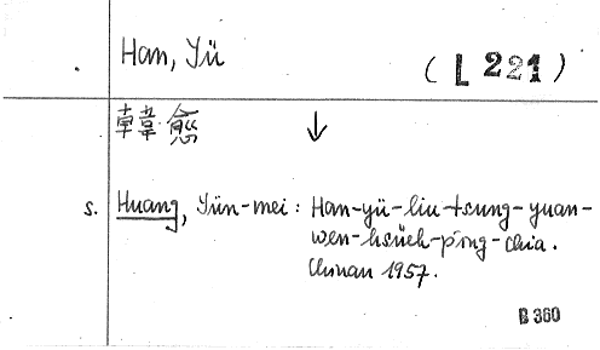 Han, Yü
( L 221 )
韓愈 ↓
s. Huang, Yün-mei : Han-yü-liu-tsung-yuan-
wen-hsüeh-p'ing-chia.
Chinan 1957.
B 360